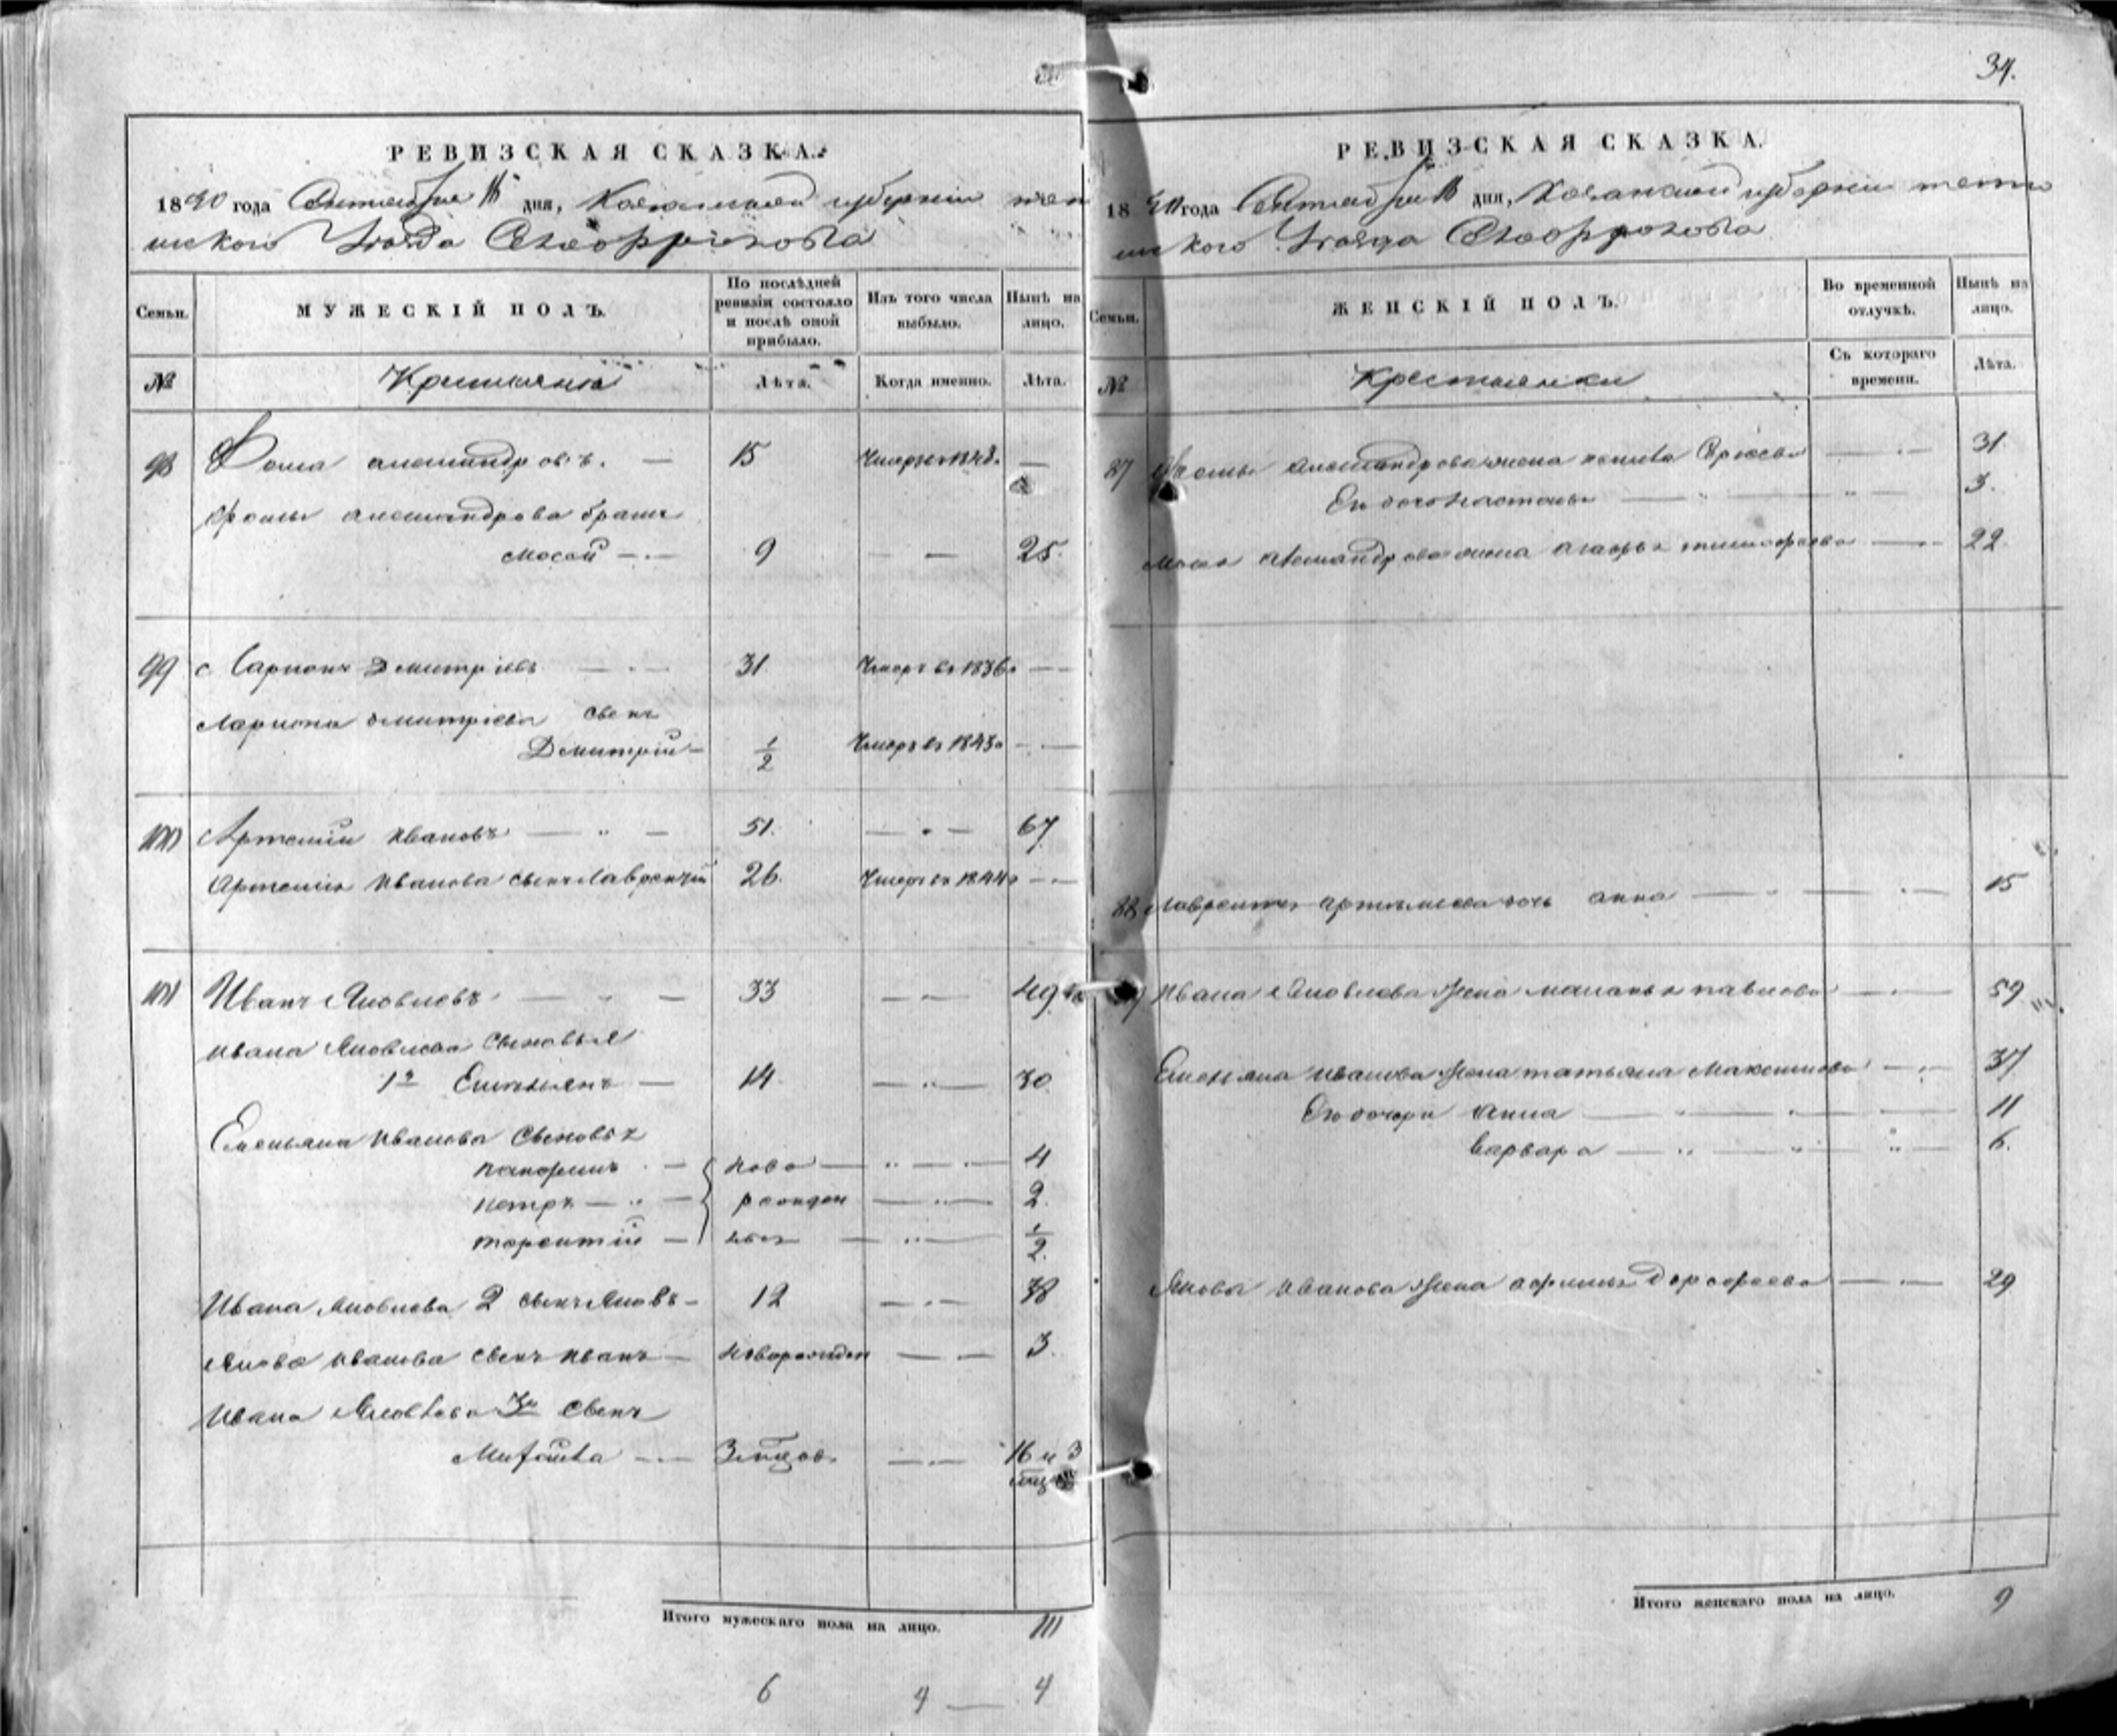 34.
РЕВИЗСКАЯ СКАЗКА.
1850 года Сентября 15 дня, Казанской губернии тетю
шского Уезда
Семьи.
МУЖЕСКІЙ ПОЛЪ.
По послѣдней ревизіи состояло и послѣ оной прибыло.
Изъ того числа выбыло.
Нынѣ на лицо.
№
Крестьяне
Лѣта.
Когда именно.
Лѣта.
98 Фома александровъ. — 15 —
Фомы александрова братъ
мосей — 9 — 25.
99 Ларионъ Дмитріевъ — 31 Умеръ въ 1836 —
Лариона дмитріева сынъ
Дмитрій — 1/2 Умеръ въ 1843 —
100 Артемій ивановъ — 51. — 67
Артемія иванова сынъ Лаврентій 26. Умеръ въ 1844 —
101 Иванъ Яковлевъ — 33 — 49.
ивана Яковлева сыновья
1й Емельянъ — 14 — 30
Емельяна иванова сыновья
— ново — 4
петръ — рожден — 2.
терентій — ные — 1/2.
Ивана Яковлева 2 сынъ Яковъ — 12 — 38
Якова иванова сынъ иванъ — новорожден — 3.
Ивана Яковлева 3й сынъ
— 16 и 3
Итого мужескаго пола на лицо.
6 4 — 4
РЕВИЗСКАЯ СКАЗКА.
1850 года Сентября 15 дня, Казанской губернии тетю
шского Уезда
Семьи.
ЖЕНСКІЙ ПОЛЪ.
Во временной отлучкѣ.
Нынѣ на лицо.
№
Крестьянки
Съ котораго времени.
Лѣта.
87 Фомы александрова жена — 31.
Ея дочь настасья — 3.
александрова жена — 22.
88 Лаврентия артемьева дочь анна — 15
Ивана Яковлева жена маланья павлова — 59
Емельяна иванова жена татьяна Максимова — 37
Ея дочери анна — 11
варвара — 6.
Якова иванова жена дорофеева — 29
Итого женскаго пола на лицо. 9